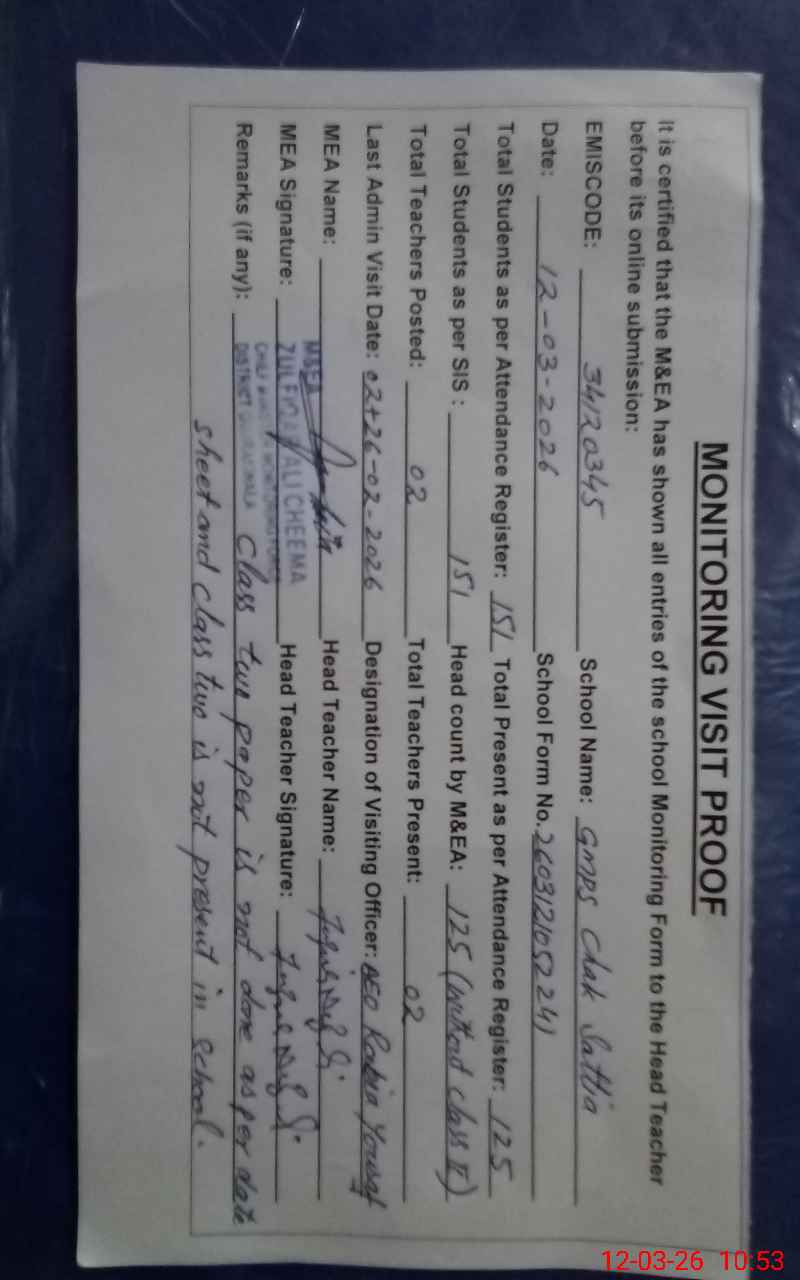 MONITORING VISIT PROOF
It is certified that the M&EA has shown all entries of the school Monitoring Form to the Head Teacher
before its online submission:
EMISCODE: 34120345 School Name: GMPS Chak Sattia
Date: 12-03-2026 School Form No. 260312105224)
Total Students as per Attendance Register: 151 Total Present as per Attendance Register: 125
Total Students as per SIS : 151 Head count by M&EA: 125 (without class II)
Total Teachers Posted: 02 Total Teachers Present: 02
Last Admin Visit Date: 02+26-02-2026 Designation of Visiting Officer: AEO Rabia Yousaf
MEA Name: Head Teacher Name:
M&EA
MEA Signature: ZULFIQAR ALI CHEEMA Head Teacher Signature:
CHIEF MINISTER MONITORING FORCE
DISTRICT GUJRANWALA
Remarks (if any): Class two paper is not done as per date
sheet and class two is not present in school.
12-03-26 10:53